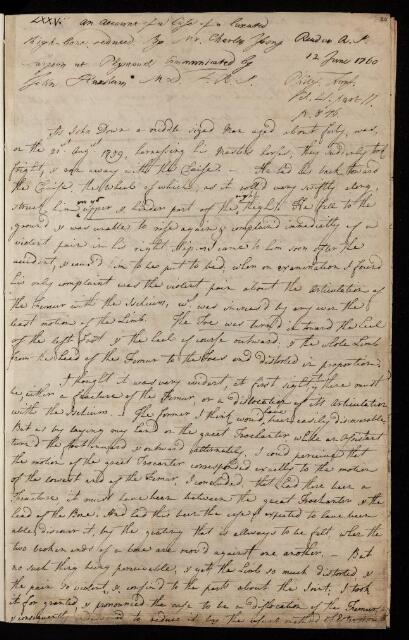 LXXV. An Account of a Case of a Luxated
Thigh-bone reduced By Mr. Charles Young Read at R.S.
Surgeon at Plymouth Communicated by 12 June 1760
John Huxham M.D. F.R.S.
As John Down a middle sized Man aged about forty, was,
on the 21st. Augt. 1759, harnessing his Masters horses, they suddenly took
fright, & ran away with the Chaise. — He had his back toward
the Chaise, the Wheel of which, as it rolled very swiftly along,
struck him on ye upper & hinder part of the Thigh. He fell to the
ground & was unable to rise again & complained immediately of a
violent pain in his right Hip. I came to him soon after the
accident, & caus'd him to be put to bed, when on examination I found
his only complaint was the violent pain about the Articulation of
the Femur with the Ischium, wch. was increas'd by any even the
least motion of the Limb. The Toe was turn'd inward the heel
of the left Foot & the heel of course outward, & the whole Limb
from the head of the Femur to the Toes was distorted in proportion.
I thought it was very evident, at first sight, there must
be either a fracture of the Femur, or a dislocation of its Articulation
with the Ischium. The former I think would have been easily discoverable,
But as by laying my hand on the great Trochanter while an Assistant
turned the foot inward & outward alternately, I could perceive that
the motion of the great Trocanter corresponded exactly to the motion
of the lowest end of the Femur, I concluded, that had there been a
Fracture it must have been between the great Trochanter & the
head of the Bone. And had this been the case I expected to have been
able discover it, by the grating that is allways to be felt, when the
two broken ends of a bone are mov'd against one another. — But
no such thing being perceivable, & yet the Limb so much distorted &
the pain so violent, & confin'd to the parts about the Joint, I took
it for granted, & pronounced the case to be a dislocation of the Femur &
consequently to reduce it by the usual method of Extension